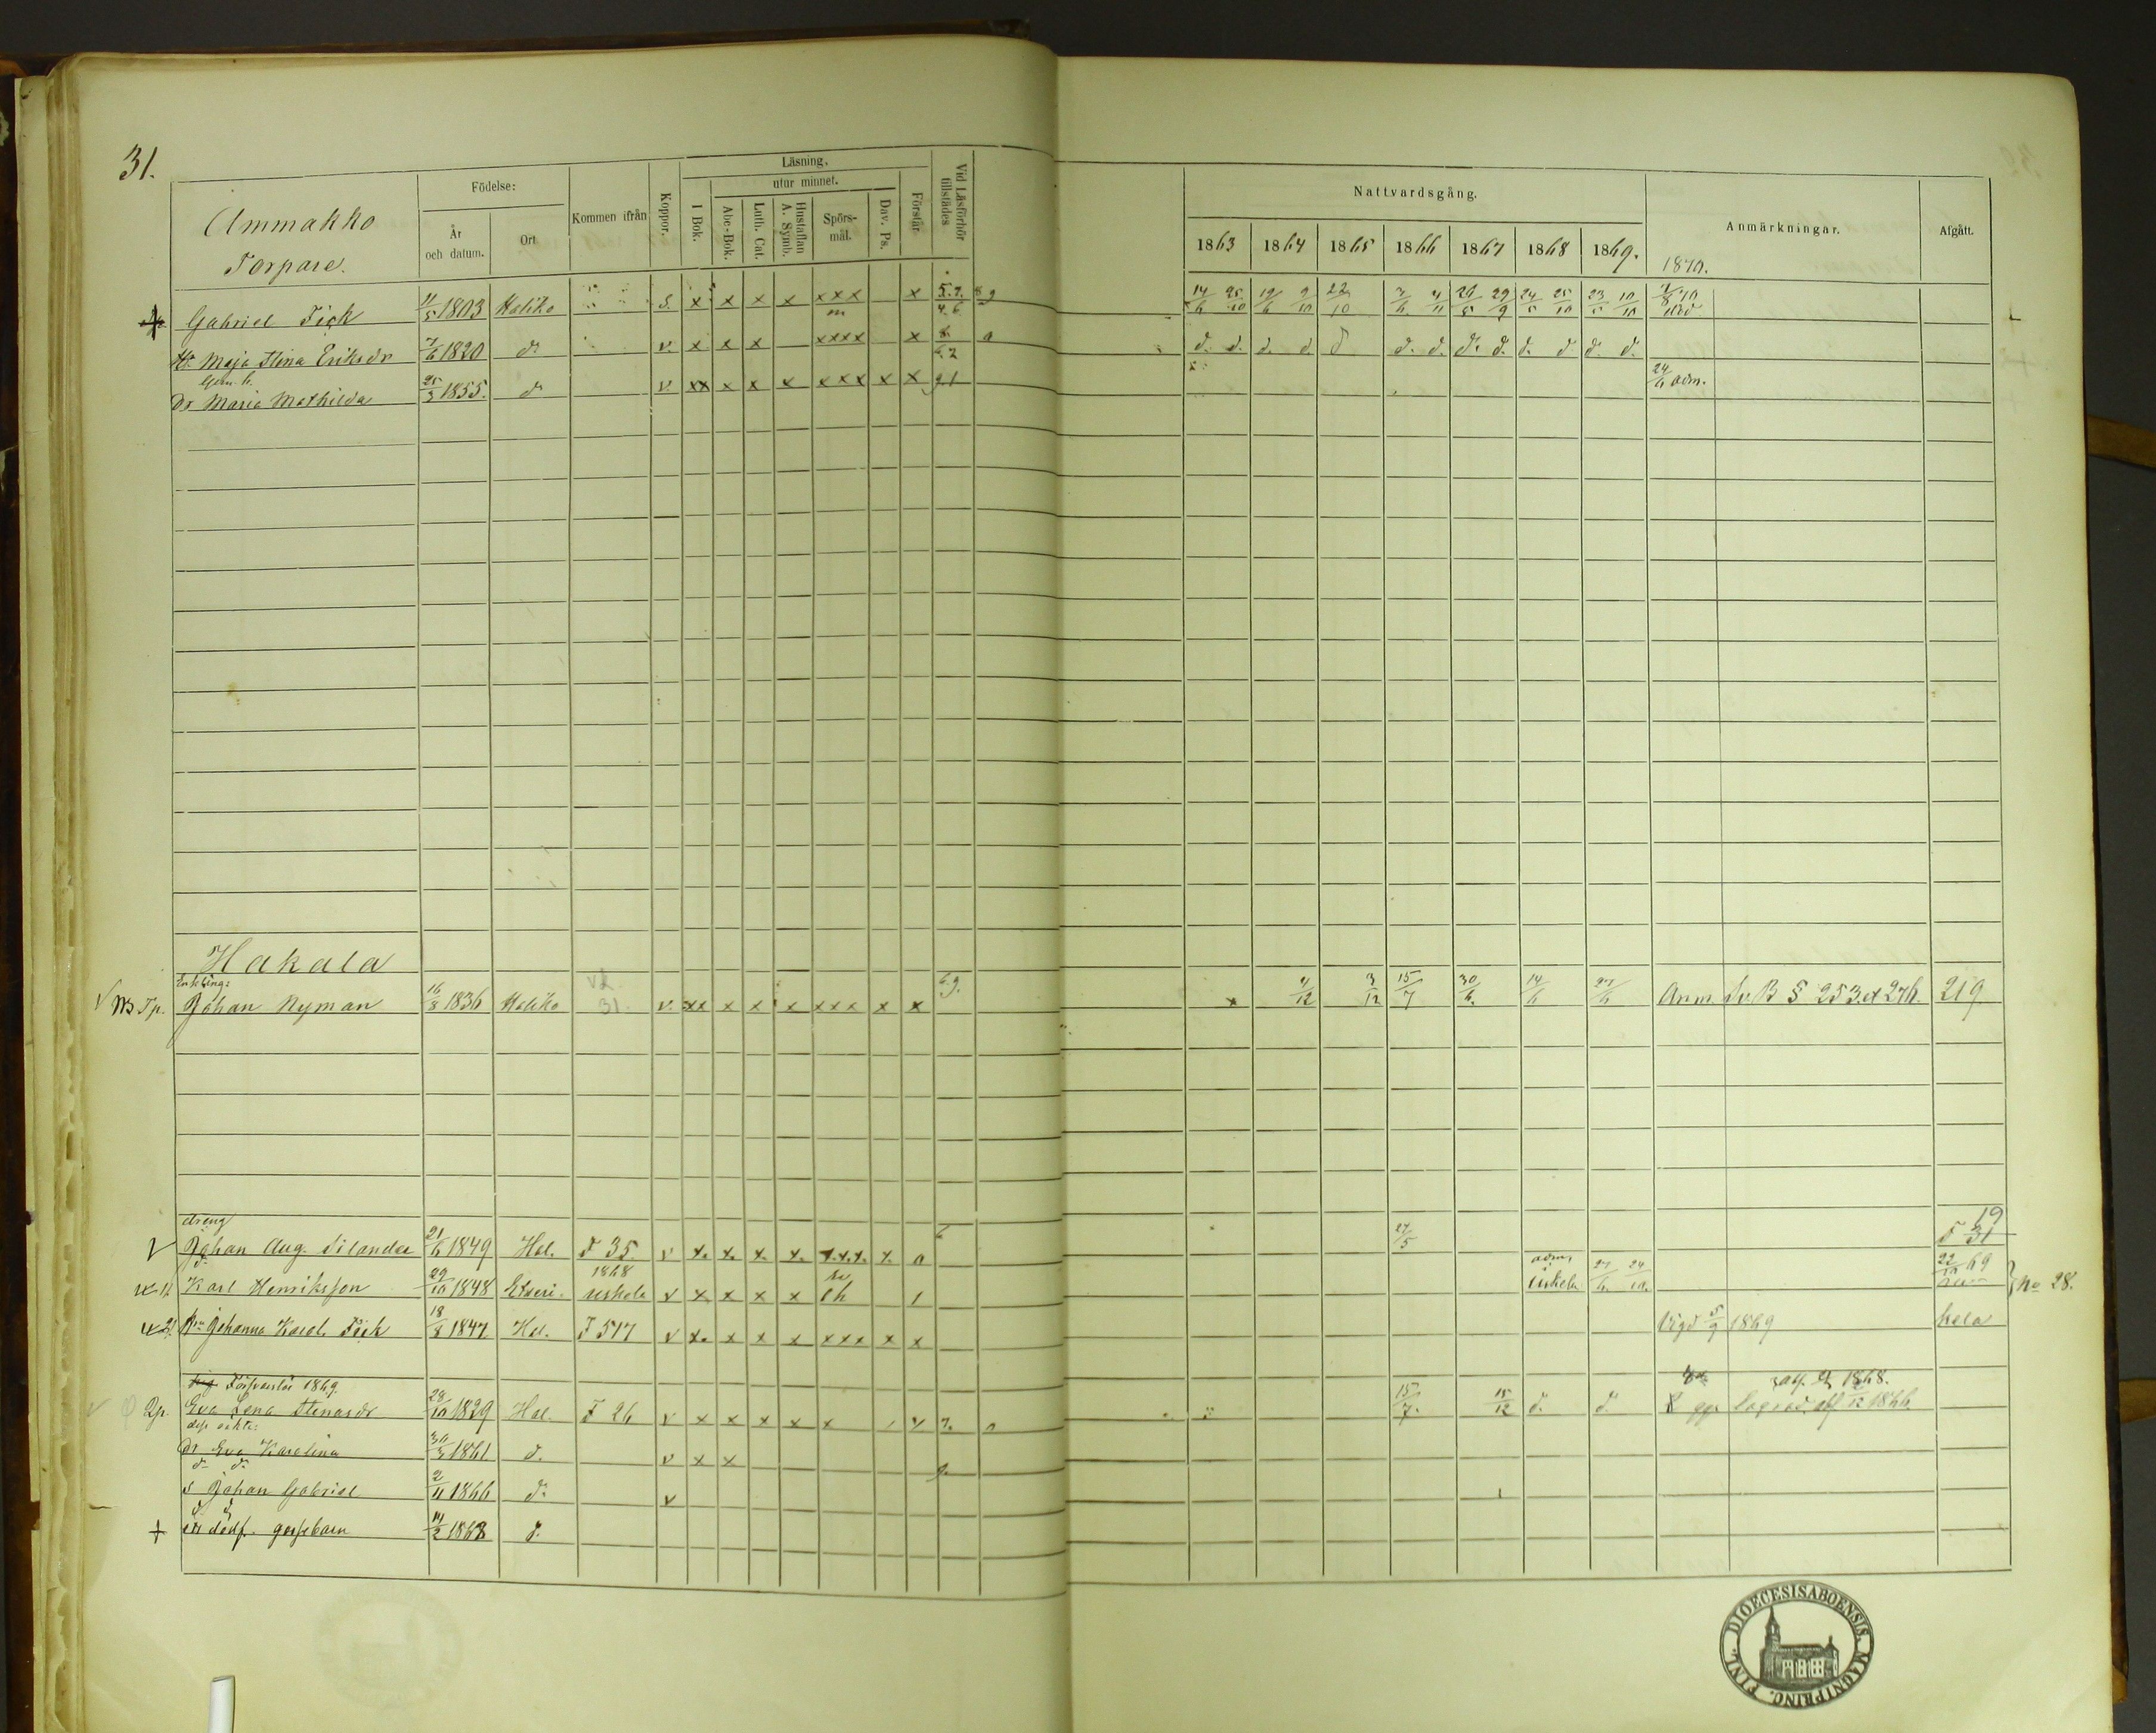 31.
Ammakko
Torpare.
Födelse:
År och datum.
Ort
Kommen ifrån
Koppor.
Läsning.
utur minnet.
I Bok.
Abc-Bok.
Luth. Cat.
Hustaflan A. Symb.
Spörsmål.
Dav. Ps.
Förstår
Vid Läsförhör tillstädes
Nattvardsgång.
1863 1864 1865 1866 1867 1868 1869. 1870.
Anmärkningar.
Afgått.
Gabriel Fick 11/5 1803 Haliko s. x x x x xxx x 5.7. 8 9 14/6 25/10 19/6 9/10 22/10 3/6 4/11 26/5 29/9 24/5 25/10 23/5 10/10
H. Maja Stina Eriksdr 7/6 1820 do v. x x x xxxx x d. d. d. d. d d. d. d. d. d. d. d. d.
Dr Maria Mathilda 25/3 1855. do v. xx x x x xxx x x 24/6 adm.
Hakala
Enkling:
NB Tp. Johan Nyman 16/8 1836 Haliko 31 v. xx x x x xxx x x 6.9. x 4/12 3/12 15/7 30/6. 14/6 27/6 Anm. Sv B § 253. et 276. 219
dreng
Johan Aug. Silander 21/6 1849 Hal. F 35 v x. x. x. x. x.x.x. x. 27/5 19 F 31
Karl Henriksson 29/10 1848 1868 uskela v x x x x adm. uskela 27/6 24/10 22/10 69 No 28.
Hu Johanna Karol. Fick 18/8 1847 Hal. F 517 v x. x x x xxx x x Vigd 5/9 1869 kela
1869.
2p. Eva Lena Stenasdr 28/10 1829 Hal. F 26 v x x x x x 7. 15/7. 15/12 d. d. 1868. 1866.
dess oäkta:
dr Eva Karolina 30/3 1861 d. v x x
do do
s Johan Gabriel 2/11 1866 do v
d d
+ dödf. gossebarn 14/2 1868 d.
DIOECESIS ABOENSIS. MAGNI PRINC. FINL.